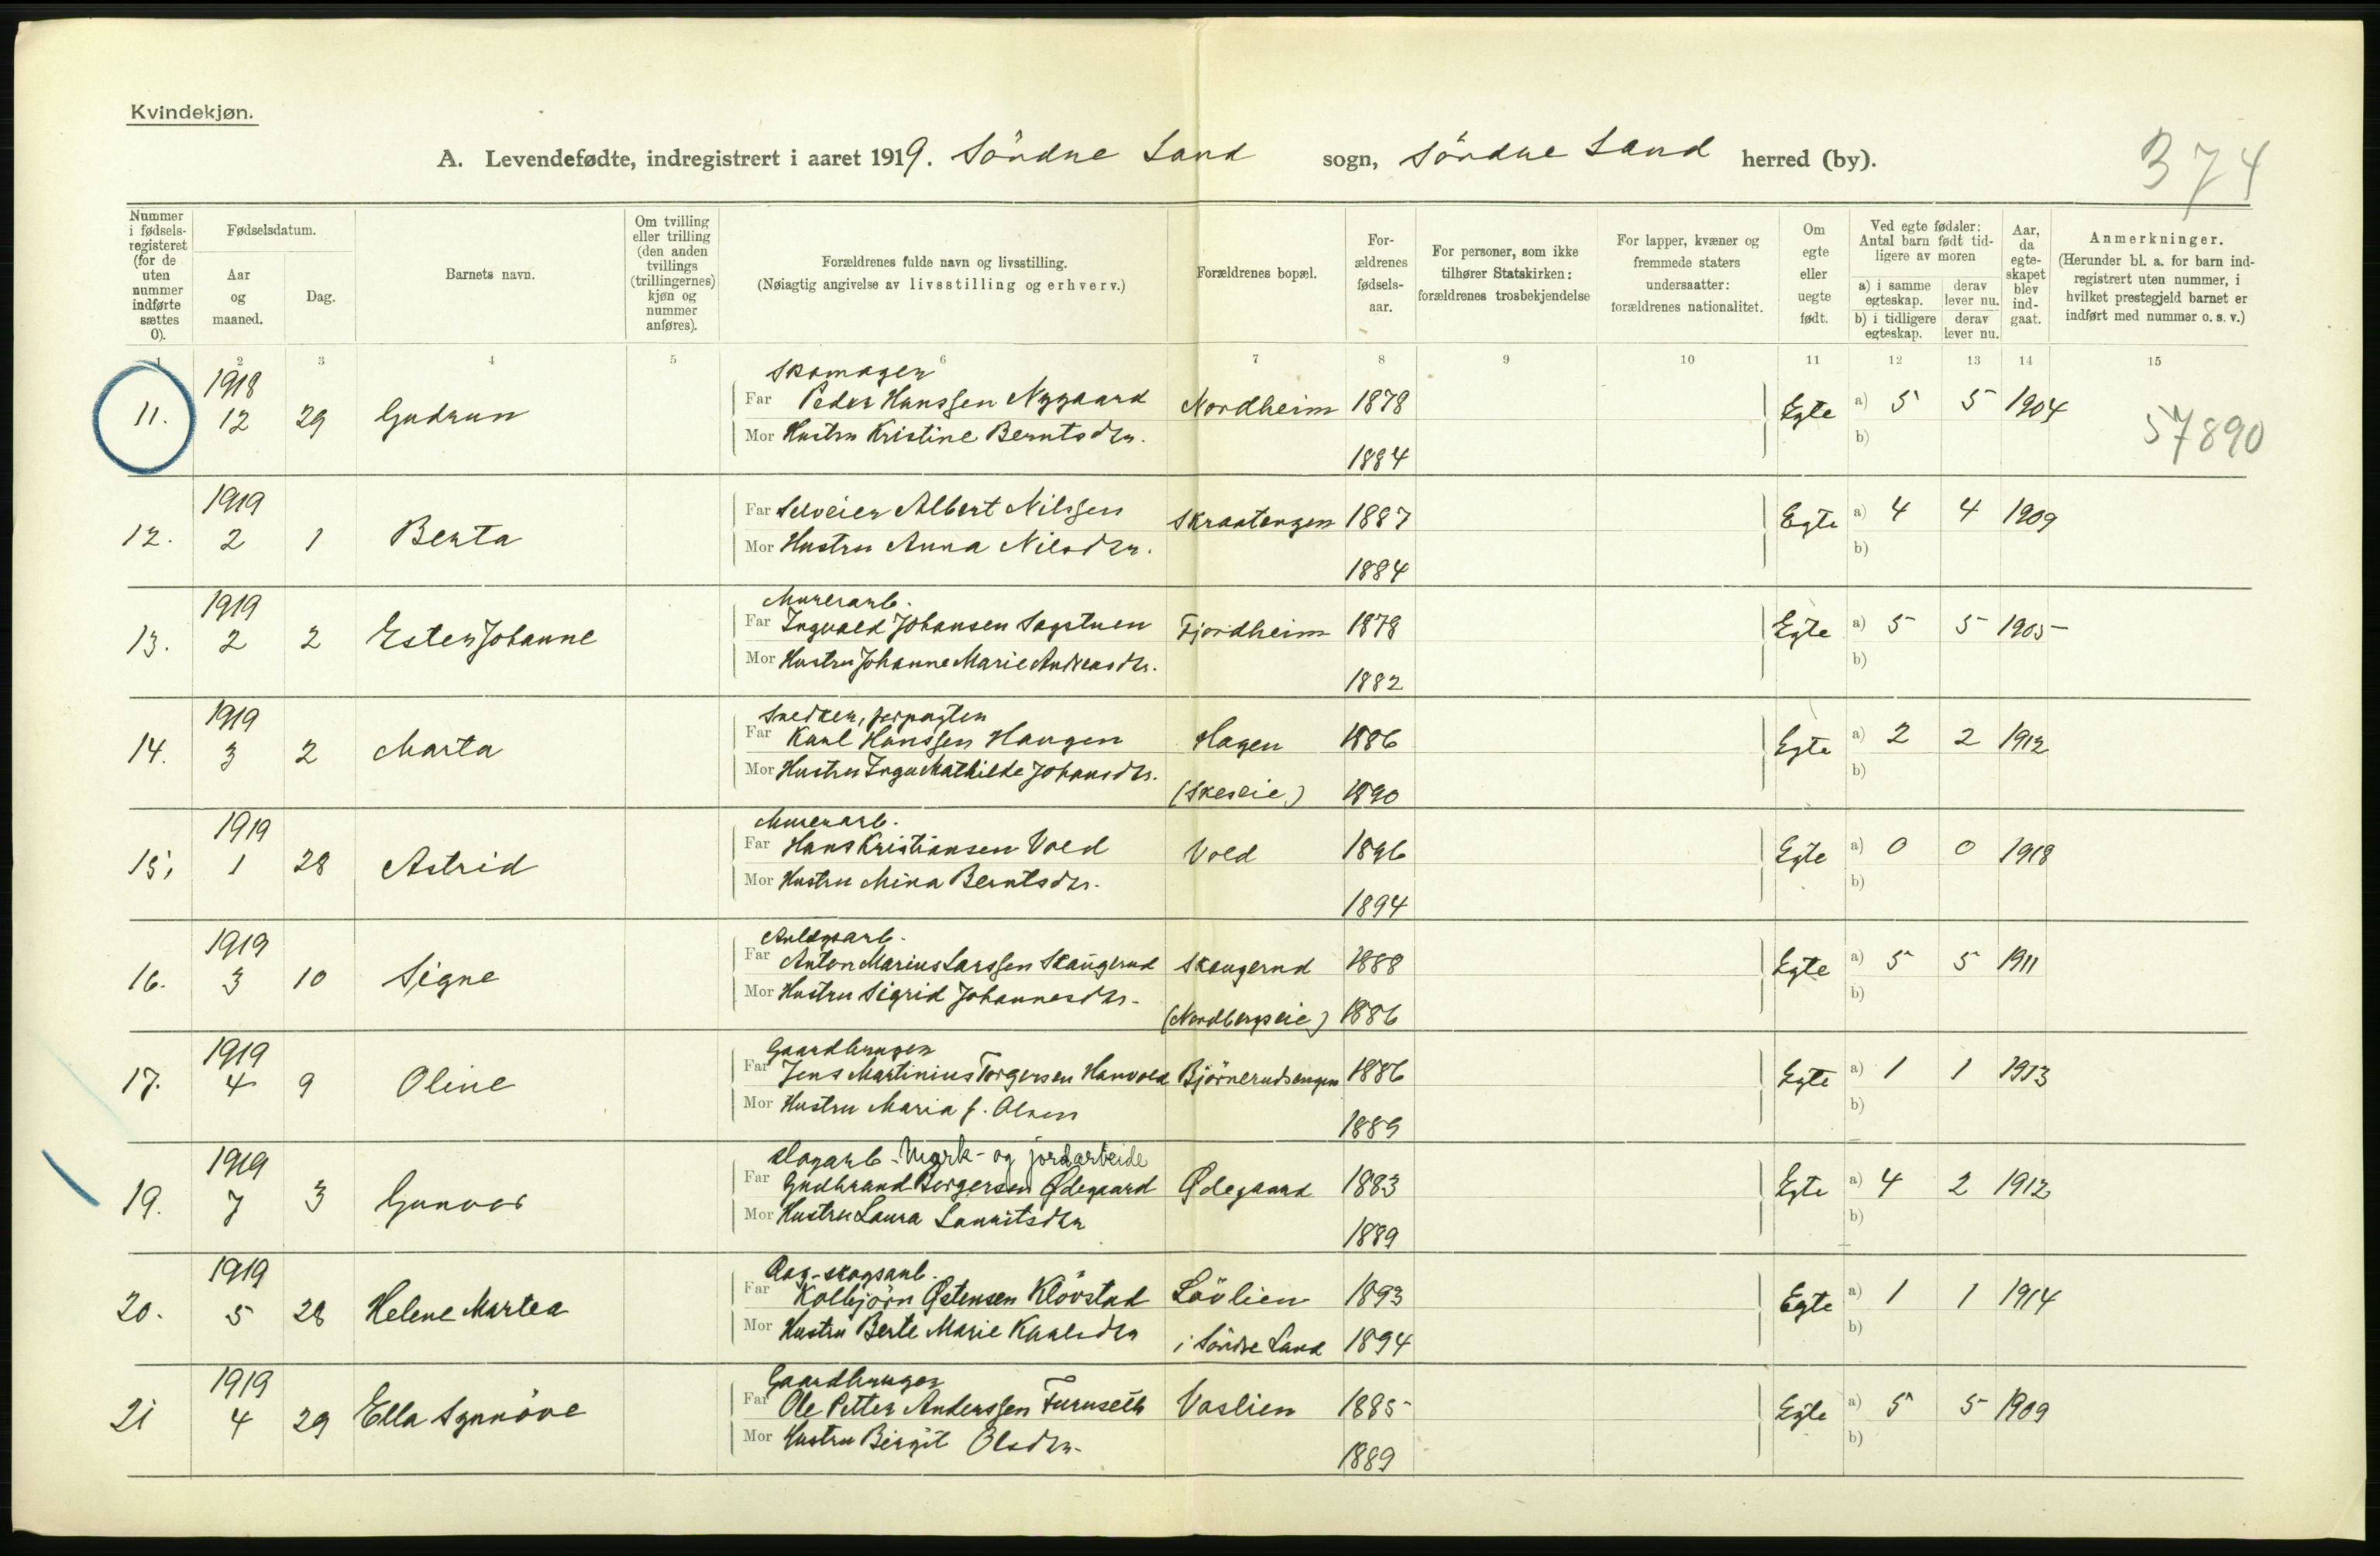 Kvindekjøn.
A. Levendefødte, indregistrert i aaret 1919. Söndre Land sogn, Söndre Land herred (by).
374
Nummer i fødsels-registeret (for de uten nummer indførte sættes 0).
Fødselsdatum.
Aar og maaned.
Dag.
Barnets navn.
Om tvilling eller trilling (den anden tvillings (trillingernes) kjøn og nummer anføres).
Forældrenes fulde navn og livsstilling.
(Nøiagtig angivelse av livsstilling og erhverv.)
Forældrenes bopæl.
For-ældrenes fødsels-aar.
For personer, som ikke tilhører Statskirken: forældrenes trosbekjendelse
For lapper, kvæner og fremmede staters undersaatter: forældrenes nationalitet.
Om egte eller uegte født.
Ved egte fødsler: Antal barn født tid-ligere av moren
a) i samme egteskap.
derav lever nu.
b) i tidligere egteskap.
derav lever nu.
Aar, da egte-skapet blev ind-gaat.
Anmerkninger.
(Herunder bl. a. for barn ind-registrert uten nummer, i hvilket prestegjeld barnet er indført med nummer o. s. v.)
1 2 3 4 5 6 7 8 9 10 11 12 13 14 15
1918 Skomager
11. 12 29 Gudrun Far Peder Hanssen Nygaard Nordheim 1878 Egte a) 5 5 1904
Mor Hustru Kristine Berntsdtr. 1884 b)
57890
1919
12. 2 1 Berta Far Selveier Albert Nilssen Skraatengen 1887 Egte a) 4 4 1909
Mor Hustru Anna Nilsdtr. 1884 b)
1919 Murerarb.
13. 2 2 Ester Johanne Far Ingvald Johansen Sagstuen Fjordheim 1878 Egte a) 5 5 1905
Mor Hustru Johanne Marie Andreasdtr. 1882 b)
1919 Snedker, forpagter
14. 3 2 Marta Far Karl Hanssen Haugen Hagen 1886 Egte a) 2 2 1912
Mor Hustru Inga Mathilde Johansdtr. (Skeseie) 1890 b)
1919 Murerarb.
15. 1 28 Astrid Far Hans Kristiansen Vold Vold 1896 Egte a) 0 0 1918
Mor Hustru Mina Berntsdtr. 1894 b)
1919 Anlegsarb.
16. 3 10 Signe Far Anton Marius Larssen Skaugerud Skaugerud 1888 Egte a) 5 5 1911
Mor Hustru Sigrid Johannesdtr. (Nordbergseie) 1886 b)
1919 Gaardbruger
17. 4 9 Oline Far Jens Martinius Torgersen Hanvold Björnerudsengen 1886 Egte a) 1 1 1913
Mor Hustru Maria f. Olsen 1889 b)
1919 Dagarb - Myrk- og jordarbeide
19. 7 3 Gunvor Far Gudbrand Borgersen Ødegaard Ødegaard 1883 Egte a) 4 2 1912
Mor Hustru Laura Lauritsdtr 1889 b)
1919 Dag-skogsarb.
20. 5 28 Helene Martea Far Kolbjörn Østensen Klövstad Lövlien 1893 Egte a) 1 1 1914
Mor Hustru Berte Marie Karlsdtr i Söndre Land 1894 b)
1919 Gaardbruger
21 4 29 Ella Synnöve Far Ole Petter Anderssen Furuseth Vaslien 1885 Egte a) 5 5 1909
Mor Hustru Birgit Olsdtr. 1889 b)